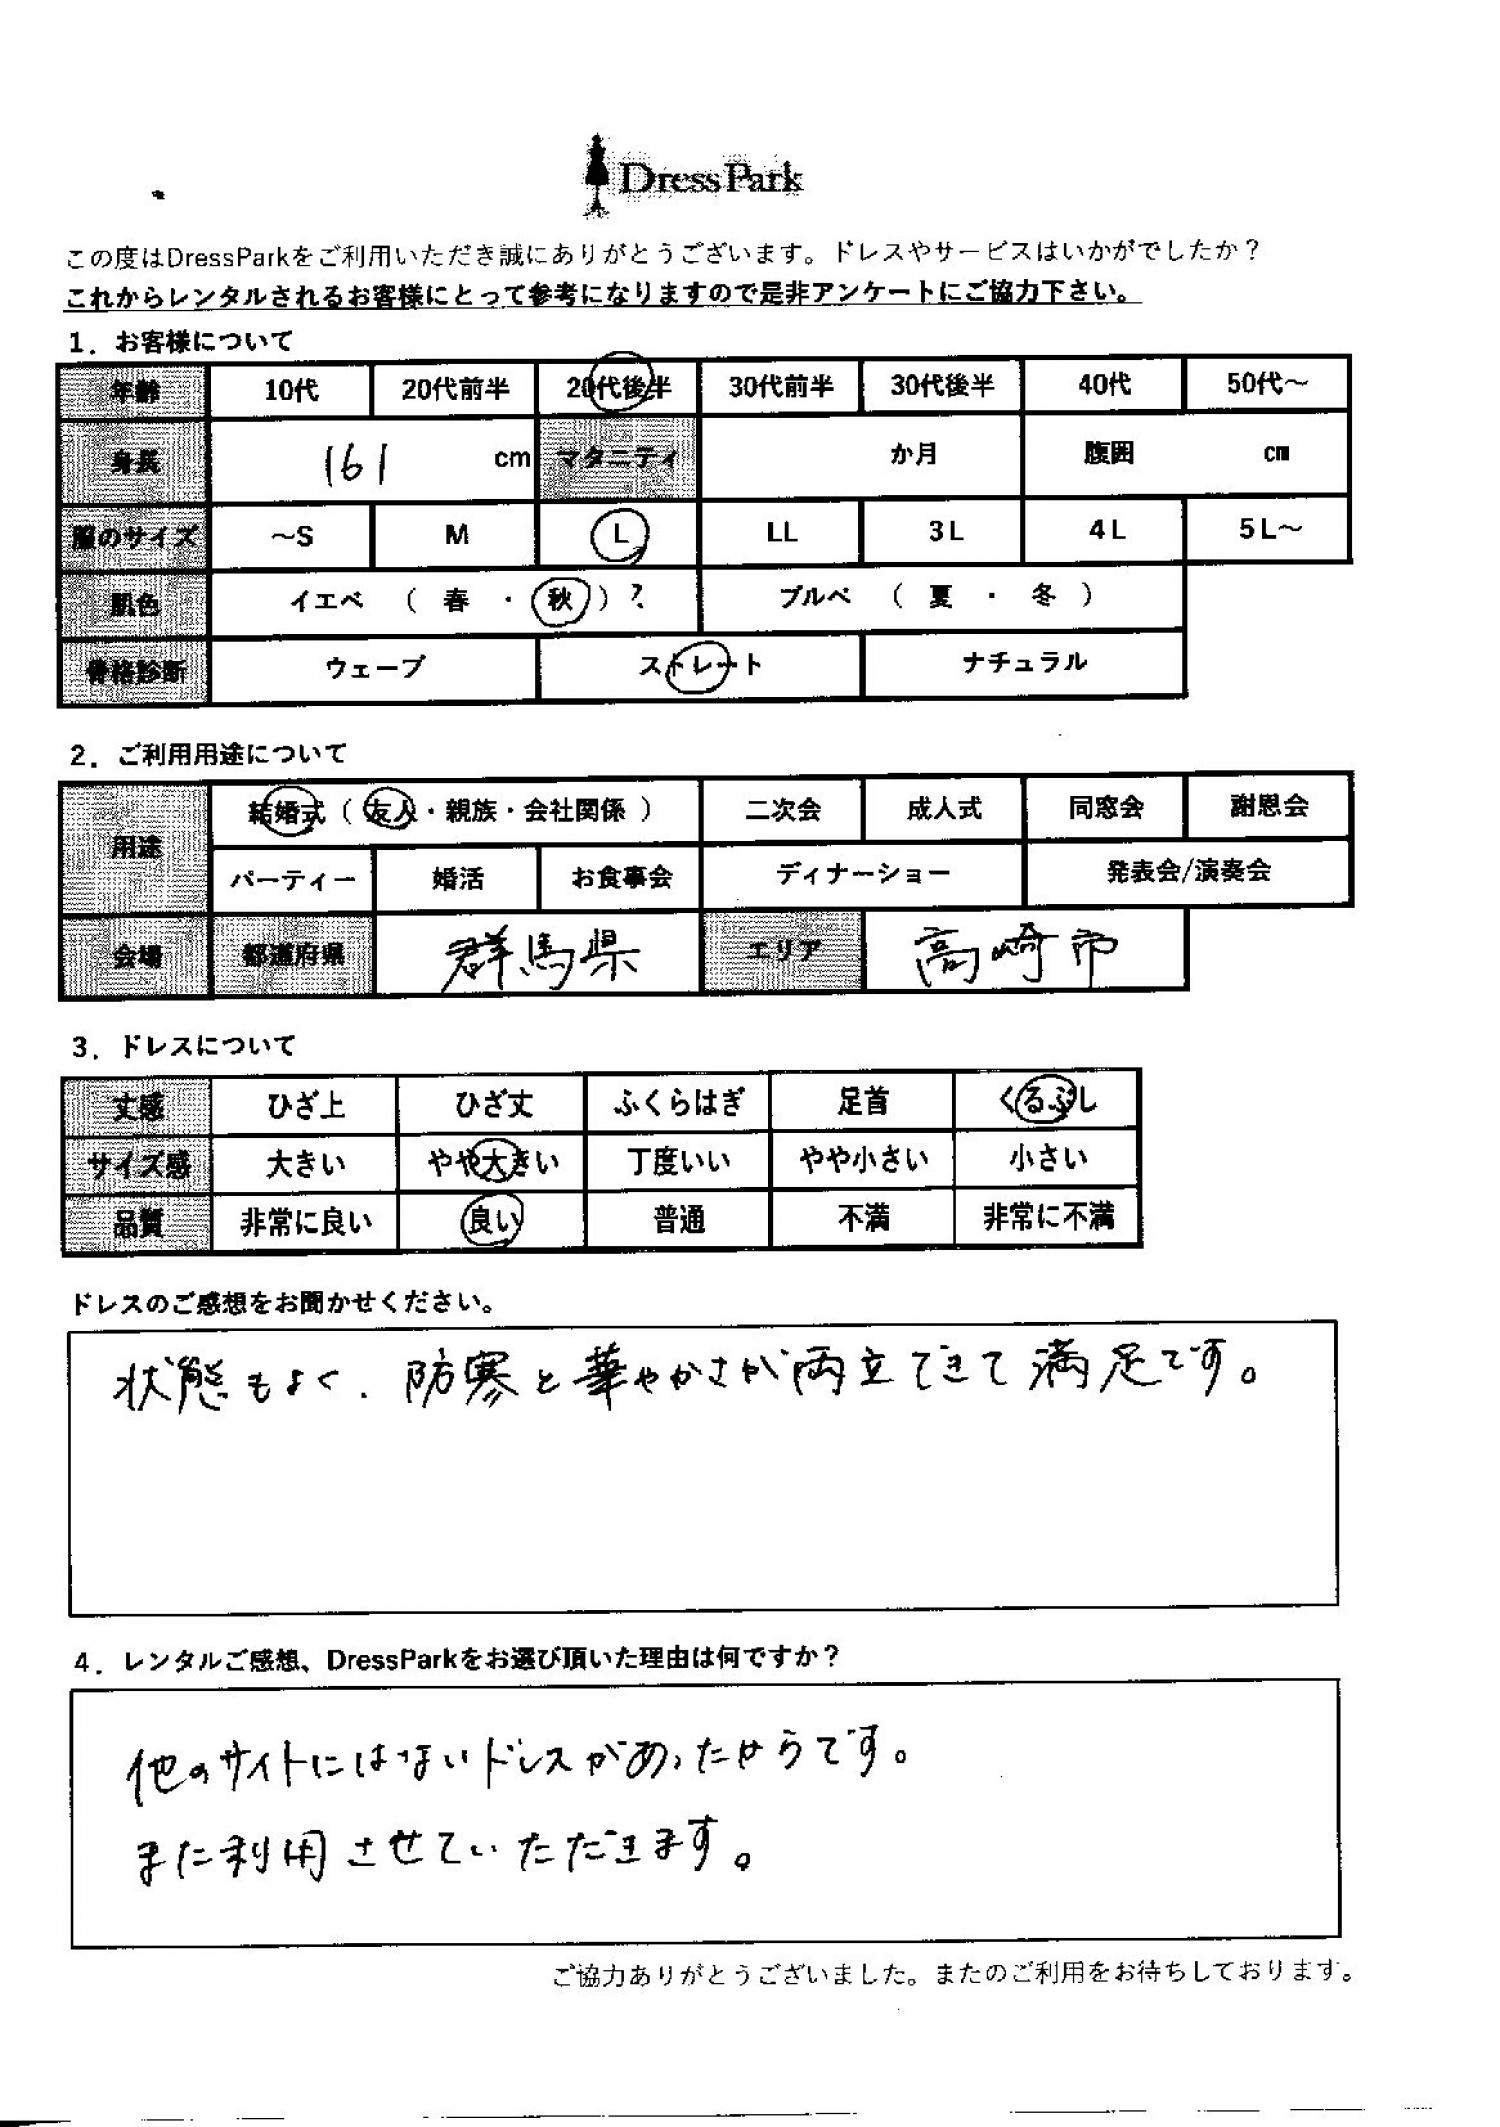 DressPark
この度はDressParkをご利用いただき誠にありがとうございます。ドレスやサービスはいかがでしたか？
これからレンタルされるお客様にとって参考になりますので是非アンケートにご協力下さい。
1．お客様について
年齢 10代 20代前半 20代後半 30代前半 30代後半 40代 50代～
身長 161 cm マタニティ か月 腹囲 cm
服のサイズ ～S M L LL 3L 4L 5L～
肌色 イエベ （ 春 ・ 秋 ）？ ブルベ （ 夏 ・ 冬 ）
骨格診断 ウェーブ ストレート ナチュラル
2．ご利用用途について
用途 結婚式（ 友人・親族・会社関係 ） 二次会 成人式 同窓会 謝恩会
パーティー 婚活 お食事会 ディナーショー 発表会/演奏会
会場 都道府県 群馬県 エリア 高崎市
3．ドレスについて
丈感 ひざ上 ひざ丈 ふくらはぎ 足首 くるぶし
サイズ感 大きい やや大きい 丁度いい やや小さい 小さい
品質 非常に良い 良い 普通 不満 非常に不満
ドレスのご感想をお聞かせください。
状態もよく、防寒と華やかさが両立できて満足です。
4．レンタルご感想、DressParkをお選び頂いた理由は何ですか？
他のサイトにはないドレスがあったからです。
また利用させていただきます。
ご協力ありがとうございました。またのご利用をお待ちしております。